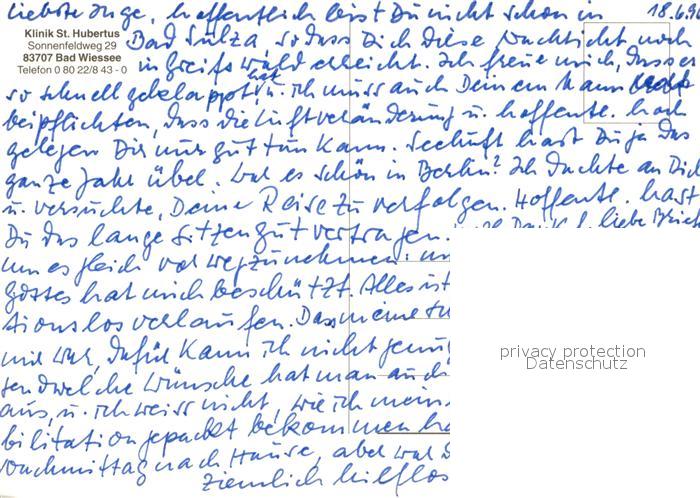 liebste Inge, hoffentlich bist Du nicht schon in 18.6.9
Klinik St. Hubertus
Sonnenfeldweg 29
83707 Bad Wiessee
Telefon 0 80 22/8 43 - 0
Bad Sulza, so dass Dich diese Nachricht noch
in Greifswald erreicht. Ich freue mich, dass es
so schnell geklappt hat u. ich muss auch Deinem Mann
beipflichten, dass die Luftveränderung u. hoffentl. hoch
gelegen Dir nur gut tun kann. Seeluft hast Du ja das
ganze Jahr über. War es schön in Berlin? Ich dachte an Dich
u. versuchte, Deine Reise zu verfolgen. Hoffentl. hast
Du das lange Sitzen gut vertragen. Dank f. liebe
um es gleich vorwegzunehmen:
Gottes hat mich beschützt. Alles ist
tionslos verlaufen. Dass meine
mir war, dafür kann ich nicht genug
gendwelche Wünsche hat man auch
aus, u. ich weiss nicht, wie ich mein
bilitation gepackt bekommen
nachmittag nach Hause, aber war
ziemlich hilflos
privacy protection
Datenschutz